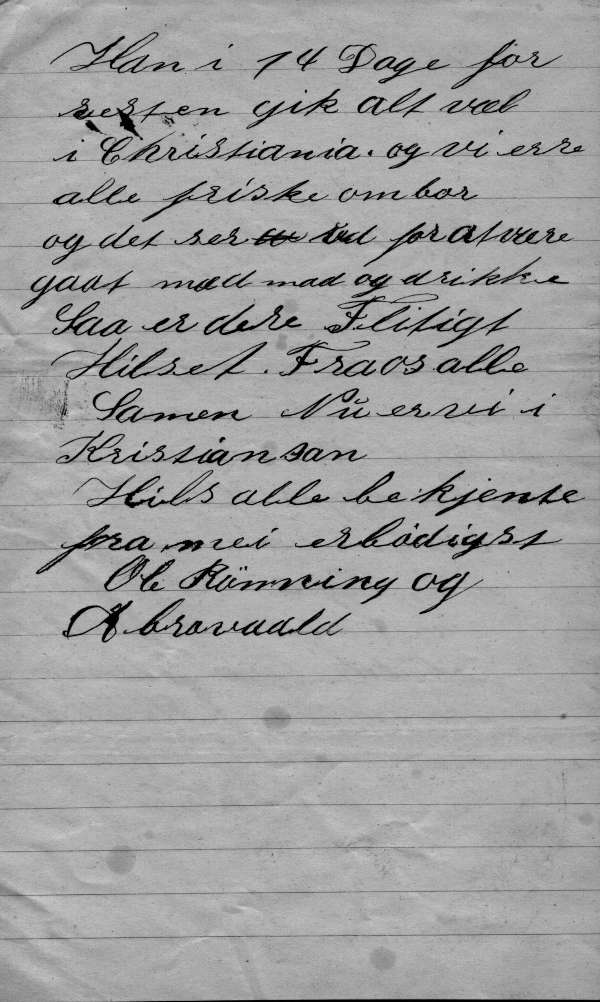 Han i 14 Dage for
resten gik alt væl
i Christiania. og vi erre
alle friske ombor
og det ser ud for at være
gaat med mad og drikke
Saa er dere Flitigt
Hilset. Fra os alle
Samen Nu er vi i
Kristiansan
Hils alle bekjente
fra mei erbödigst
Ole Rönning og
A brovaald